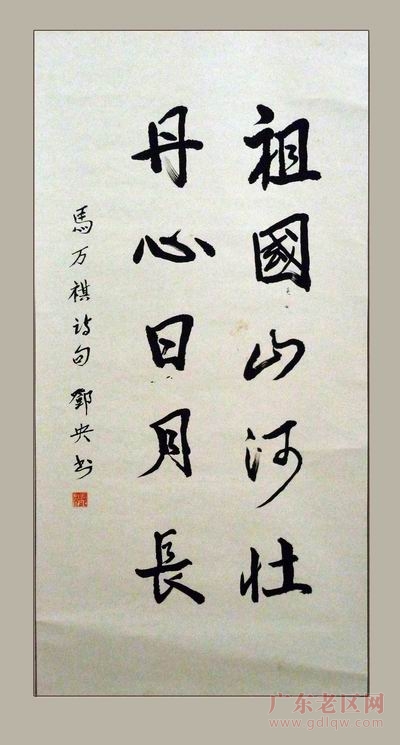 祖國山河壯
丹心日月長
馬万祺诗句 鄧央书
广东老区网
www.gdlqw.com